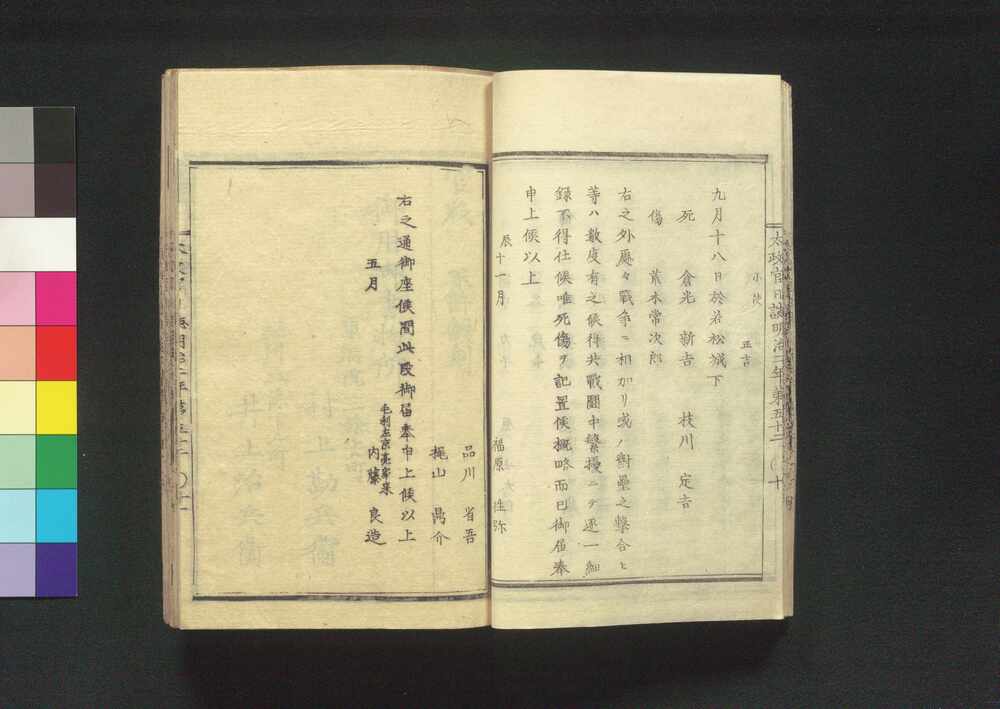 小使
正吉
九月十八日於若松城下
死 倉光新吉 枝川定吉
傷 荒木常次郎
右之外屡々戦争ニ相加リ或ハ對壘之撃合ヒ
等ハ數度有之候得共戰闘中繁擾ニテ逐一細
録不得仕候唯死傷ヲ記置候概略而已御届奉
申上候以上
辰十一月
福原 弥
品川省吾
梶山鼎介
右之通御座候間此段御届奉申上候以上
五月
毛利左京亮家来
内藤良造
太政官日誌明治二年第五十二
十